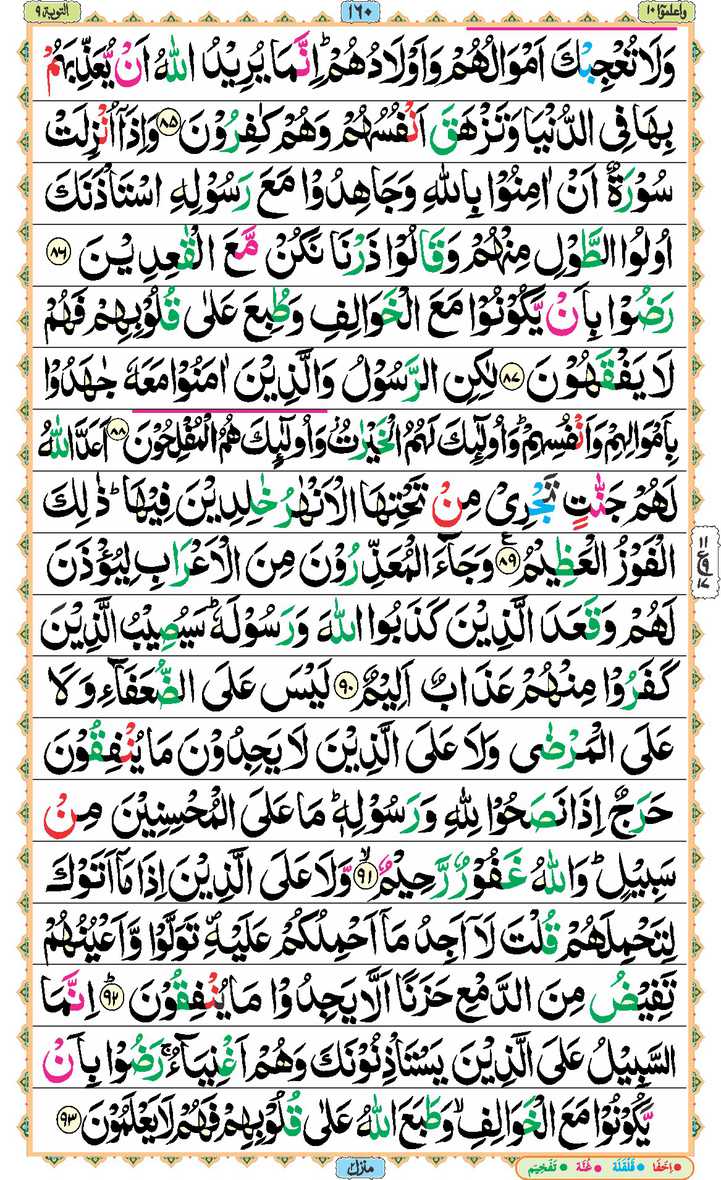 واعلموٓا ١٠
١٦٠
التوبة ٩
وَلَا تُعْجِبْكَ اَمْوَالُهُمْ وَاَوْلَادُهُمْ ؕ اِنَّمَا يُرِيْدُ اللّٰهُ اَنْ يُّعَذِّبَهُمْ
بِهَا فِى الدُّنْيَا وَتَزْهَقَ اَنْفُسُهُمْ وَهُمْ كٰفِرُوْنَ ﴿۸۵﴾ وَاِذَاۤ اُنْزِلَتْ
سُوْرَةٌ اَنْ اٰمِنُوْا بِاللّٰهِ وَجَاهِدُوْا مَعَ رَسُوْلِهِ اسْتَاْذَنَكَ
اُولُوا الطَّوْلِ مِنْهُمْ وَقَالُوْا ذَرْنَا نَكُنْ مَّعَ الْقٰعِدِيْنَ ﴿۸۶﴾
رَضُوْا بِاَنْ يَّكُوْنُوْا مَعَ الْخَوَالِفِ وَطُبِعَ عَلٰى قُلُوْبِهِمْ فَهُمْ
لَا يَفْقَهُوْنَ ﴿۸۷﴾ لٰكِنِ الرَّسُوْلُ وَالَّذِيْنَ اٰمَنُوْا مَعَهٗ جٰهَدُوْا
بِاَمْوَالِهِمْ وَاَنْفُسِهِمْ ؕ وَاُولٰٓئِكَ لَهُمُ الْخَيْرٰتُ ؗ وَاُولٰٓئِكَ هُمُ الْمُفْلِحُوْنَ ﴿۸۸﴾ اَعَدَّ اللّٰهُ
لَهُمْ جَنّٰتٍ تَجْرِىْ مِنْ تَحْتِهَا الْاَنْهٰرُ خٰلِدِيْنَ فِيْهَا ؕ ذٰلِكَ
الْفَوْزُ الْعَظِيْمُ ﴿۸۹﴾ وَجَآءَ الْمُعَذِّرُوْنَ مِنَ الْاَعْرَابِ لِيُؤْذَنَ
١١
ع
١٧
لَهُمْ وَقَعَدَ الَّذِيْنَ كَذَبُوا اللّٰهَ وَرَسُوْلَهٗ ؕ سَيُصِيْبُ الَّذِيْنَ
كَفَرُوْا مِنْهُمْ عَذَابٌ اَلِيْمٌ ﴿۹۰﴾ لَيْسَ عَلَى الضُّعَفَآءِ وَلَا
عَلَى الْمَرْضٰى وَلَا عَلَى الَّذِيْنَ لَا يَجِدُوْنَ مَا يُنْفِقُوْنَ
حَرَجٌ اِذَا نَصَحُوْا لِلّٰهِ وَرَسُوْلِهٖ ؕ مَا عَلَى الْمُحْسِنِيْنَ مِنْ
سَبِيْلٍ ؕ وَاللّٰهُ غَفُوْرٌ رَّحِيْمٌ ﴿۹۱﴾ ۙ وَّلَا عَلَى الَّذِيْنَ اِذَا مَاۤ اَتَوْكَ
لِتَحْمِلَهُمْ قُلْتَ لَاۤ اَجِدُ مَاۤ اَحْمِلُكُمْ عَلَيْهِ ۪ تَوَلَّوْا وَّاَعْيُنُهُمْ
تَفِيْضُ مِنَ الدَّمْعِ حَزَنًا اَلَّا يَجِدُوْا مَا يُنْفِقُوْنَ ﴿۹۲﴾ ؕ اِنَّمَا
السَّبِيْلُ عَلَى الَّذِيْنَ يَسْتَاْذِنُوْنَكَ وَهُمْ اَغْنِيَآءُ ۚ رَضُوْا بِاَنْ
يَّكُوْنُوْا مَعَ الْخَوَالِفِ ۙ وَطَبَعَ اللّٰهُ عَلٰى قُلُوْبِهِمْ فَهُمْ لَا يَعْلَمُوْنَ ﴿۹۳﴾
منزل ٢
اِخْفَا قَلْقَلَة غُنَّة تَفْخِيْم